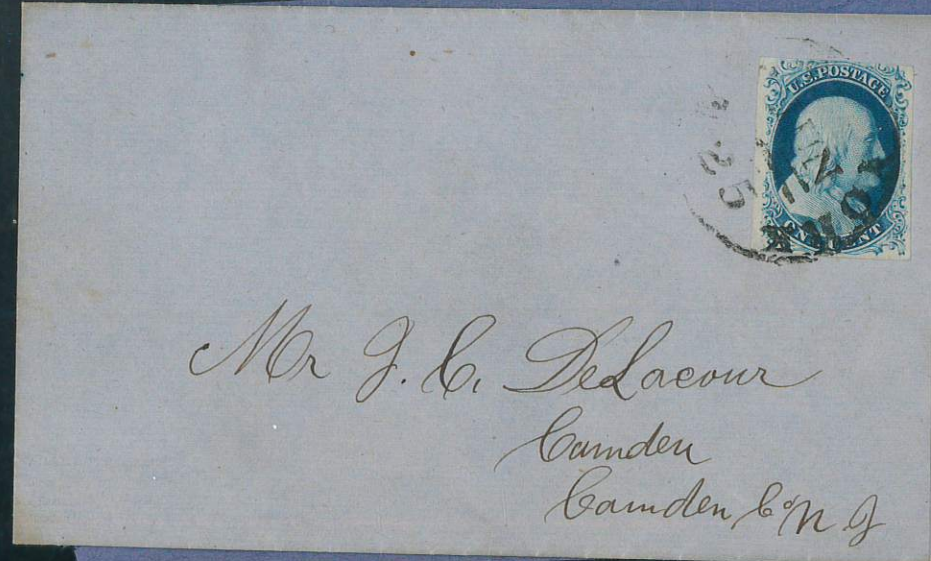 U.S. POSTAGE
ONE CENT
25
Mr J. C. DeLacour
Camden
Camden Co N J